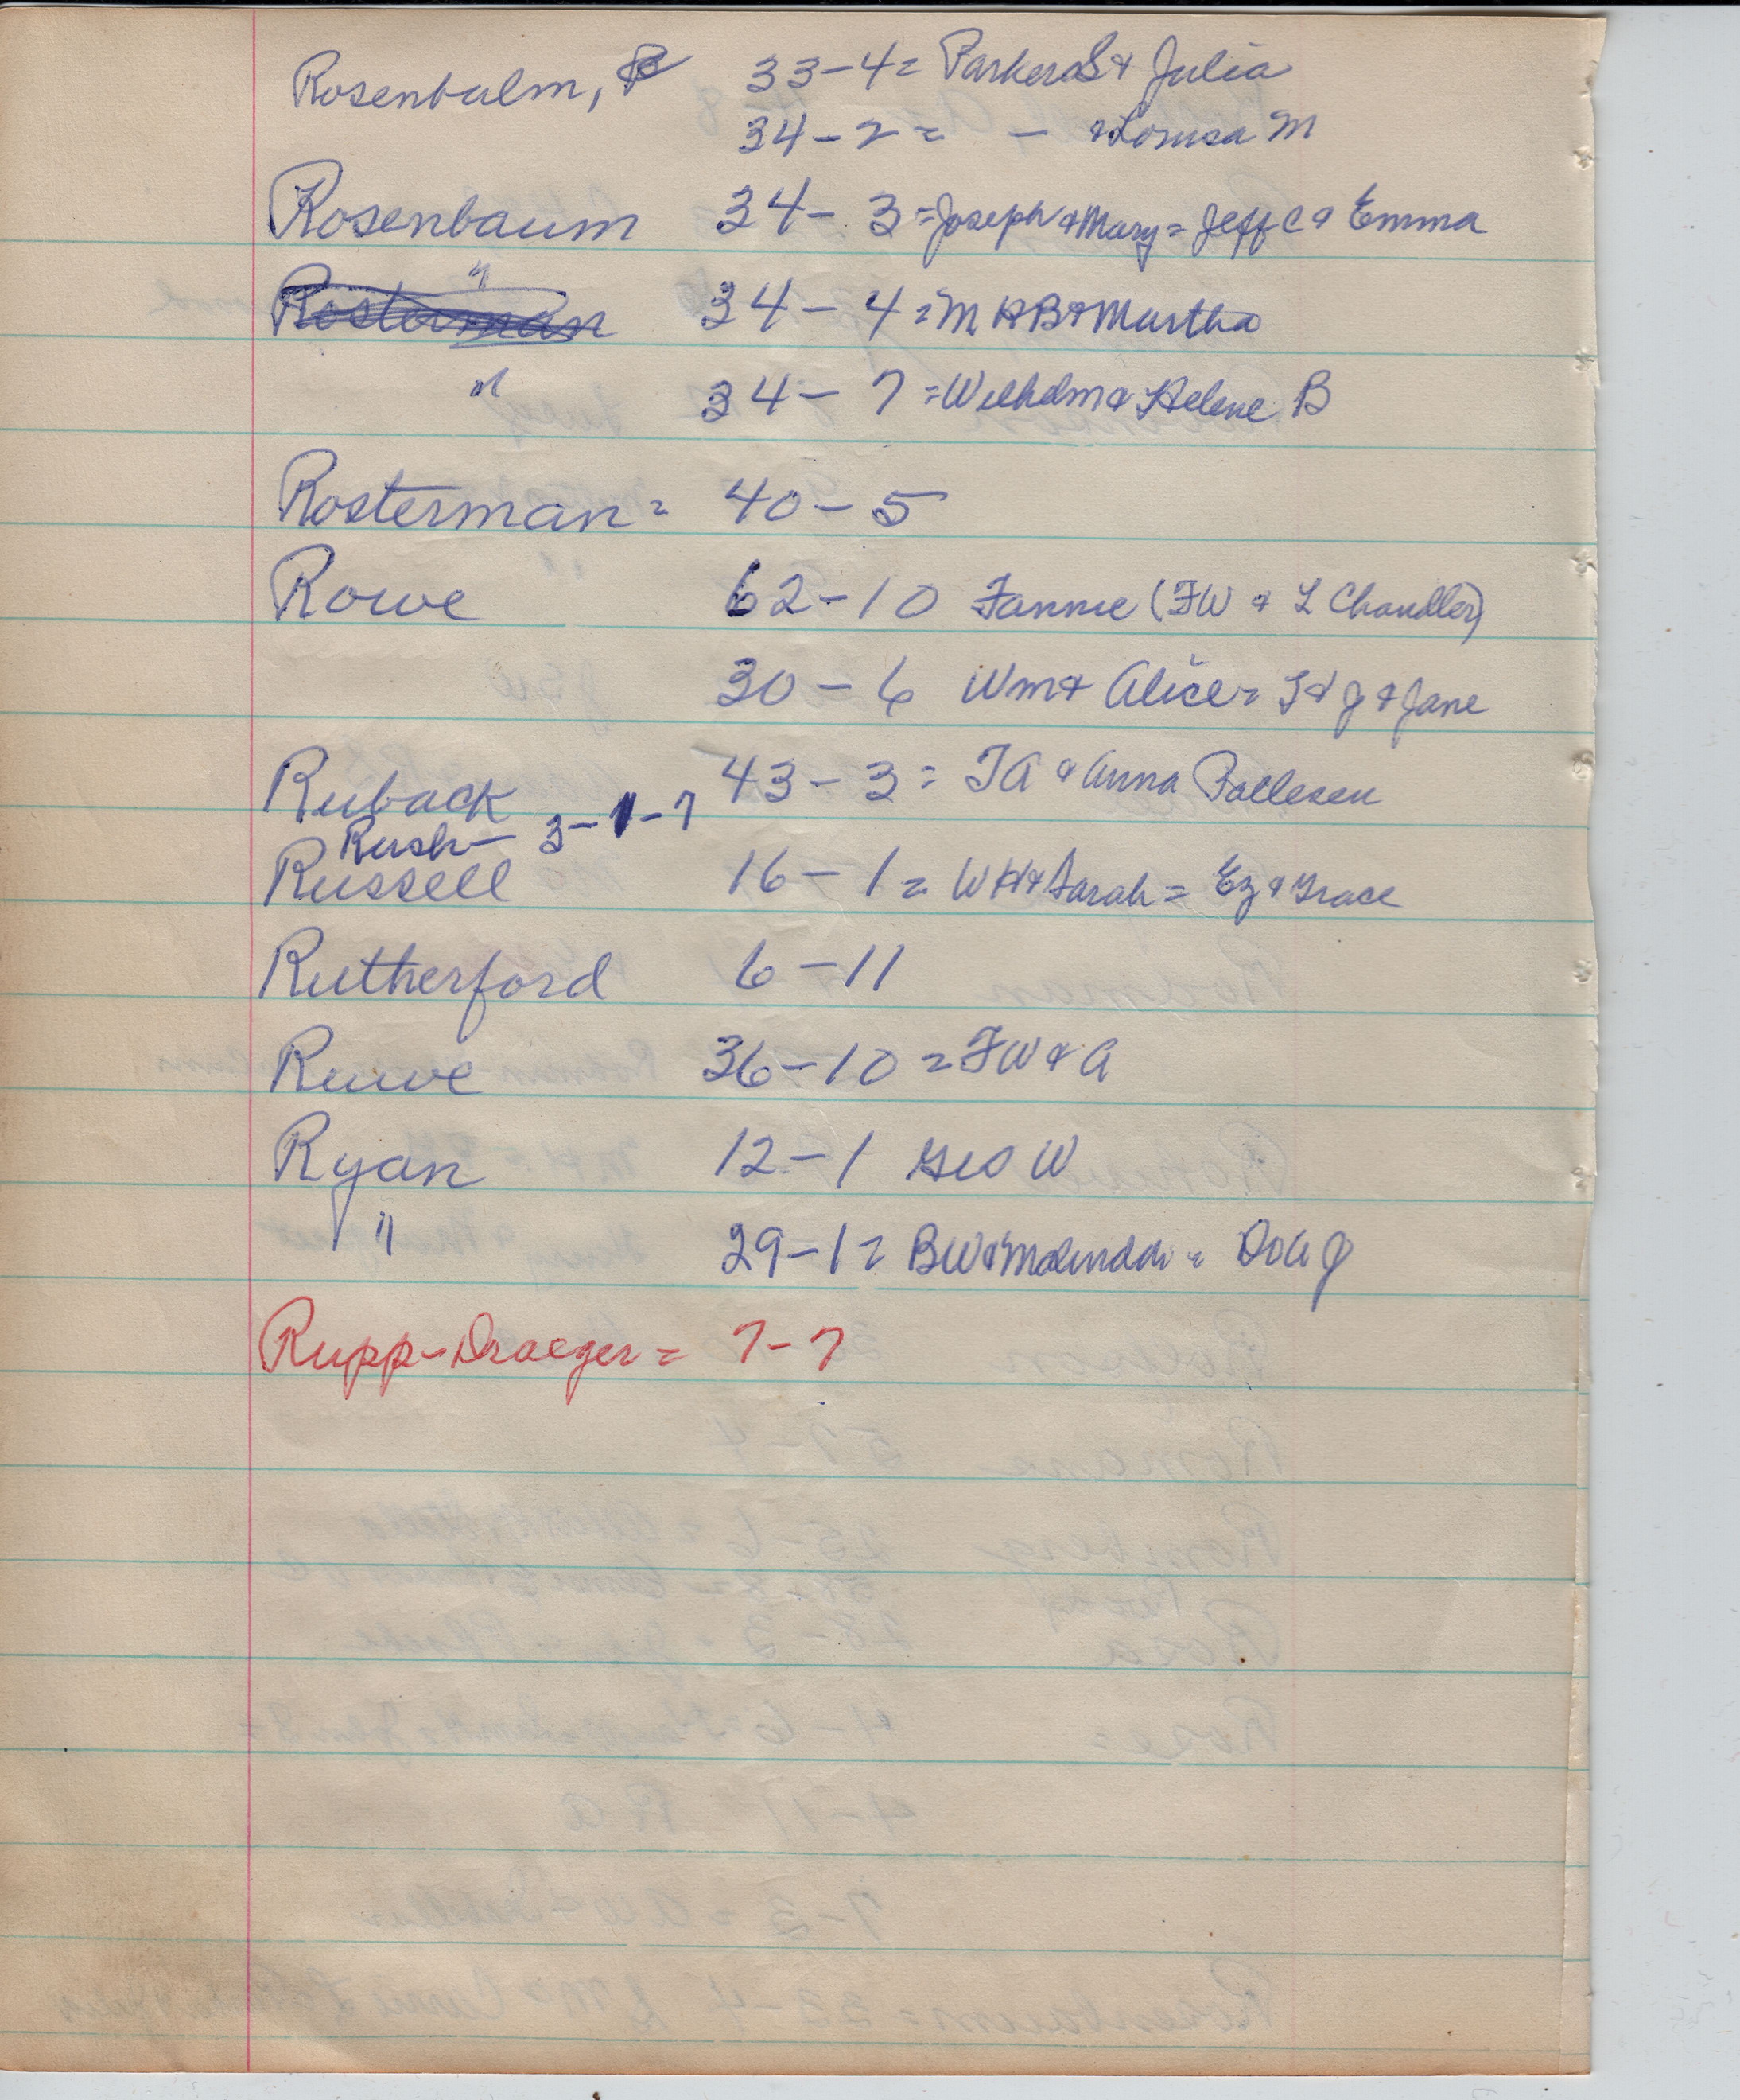 Rosenbalm, P 33-4= Parker S & Julia
34-2 = - & Lousa M
Rosenbaum 34- 3 =Joseph & Mary = Jeff C & Emma
" 34- 4 = M H B & Martha
" 34- 7 = Wilhelm & Helene B
Rosterman = 40-5
Rowe 62-10 Fannie (FW & L Chandler)
30-6 Wm & Alice = & J & Jane
Ruback 43-3 = & Anna Pallesen
Rush- 3-1-7
Russell 16-1 = WH & Sarah = Ez & Grace
Rutherford 6-11
Ruwe 36-10 = FW & A
Ryan 12-1 Geo W
" 29-1 = BW & Malinda =
Rupp-Draeger = 7-7